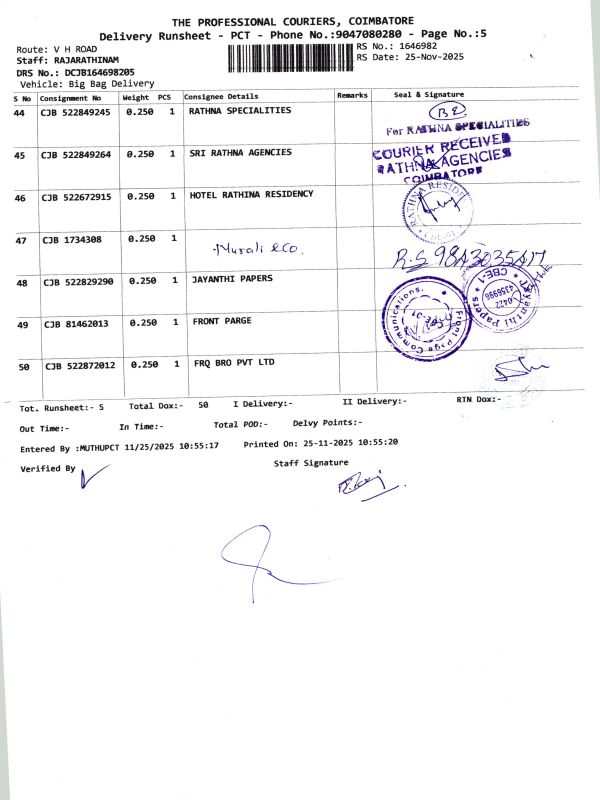 THE PROFESSIONAL COURIERS, COIMBATORE
Delivery Runsheet - PCT - Phone No.:9047080280 - Page No.:5
Route: V H ROAD
RS No.: 1646982
Staff: RAJARATHINAM
RS Date: 25-Nov-2025
DRS No.: DCJB164698205
Vehicle: Big Bag Delivery
S No Consignment No Weight PCS Consignee Details Remarks Seal & Signature
44 CJB 522849245 0.250 1 RATHNA SPECIALITIES
For RATHNA SPECIALITIES
45 CJB 522849264 0.250 1 SRI RATHNA AGENCIES
COURIER RECEIVED
RATHNA AGENCIES
COIMBATORE
46 CJB 522672915 0.250 1 HOTEL RATHINA RESIDENCY
47 CJB 1734308 0.250 1
Murali & Co.
48 CJB 522829290 0.250 1 JAYANTHI PAPERS
Jayanthi Papers
CBE-1
0422
4356996
49 CJB 81462013 0.250 1 FRONT PARGE
Front Page Communications.
50 CJB 522872012 0.250 1 FRQ BRO PVT LTD
Tot. Runsheet:- 5 Total Dox:- 50 I Delivery:- II Delivery:- RTN Dox:-
Out Time:- In Time:- Total POD:- Delvy Points:-
Entered By :MUTHUPCT 11/25/2025 10:55:17 Printed On: 25-11-2025 10:55:20
Verified By
Staff Signature